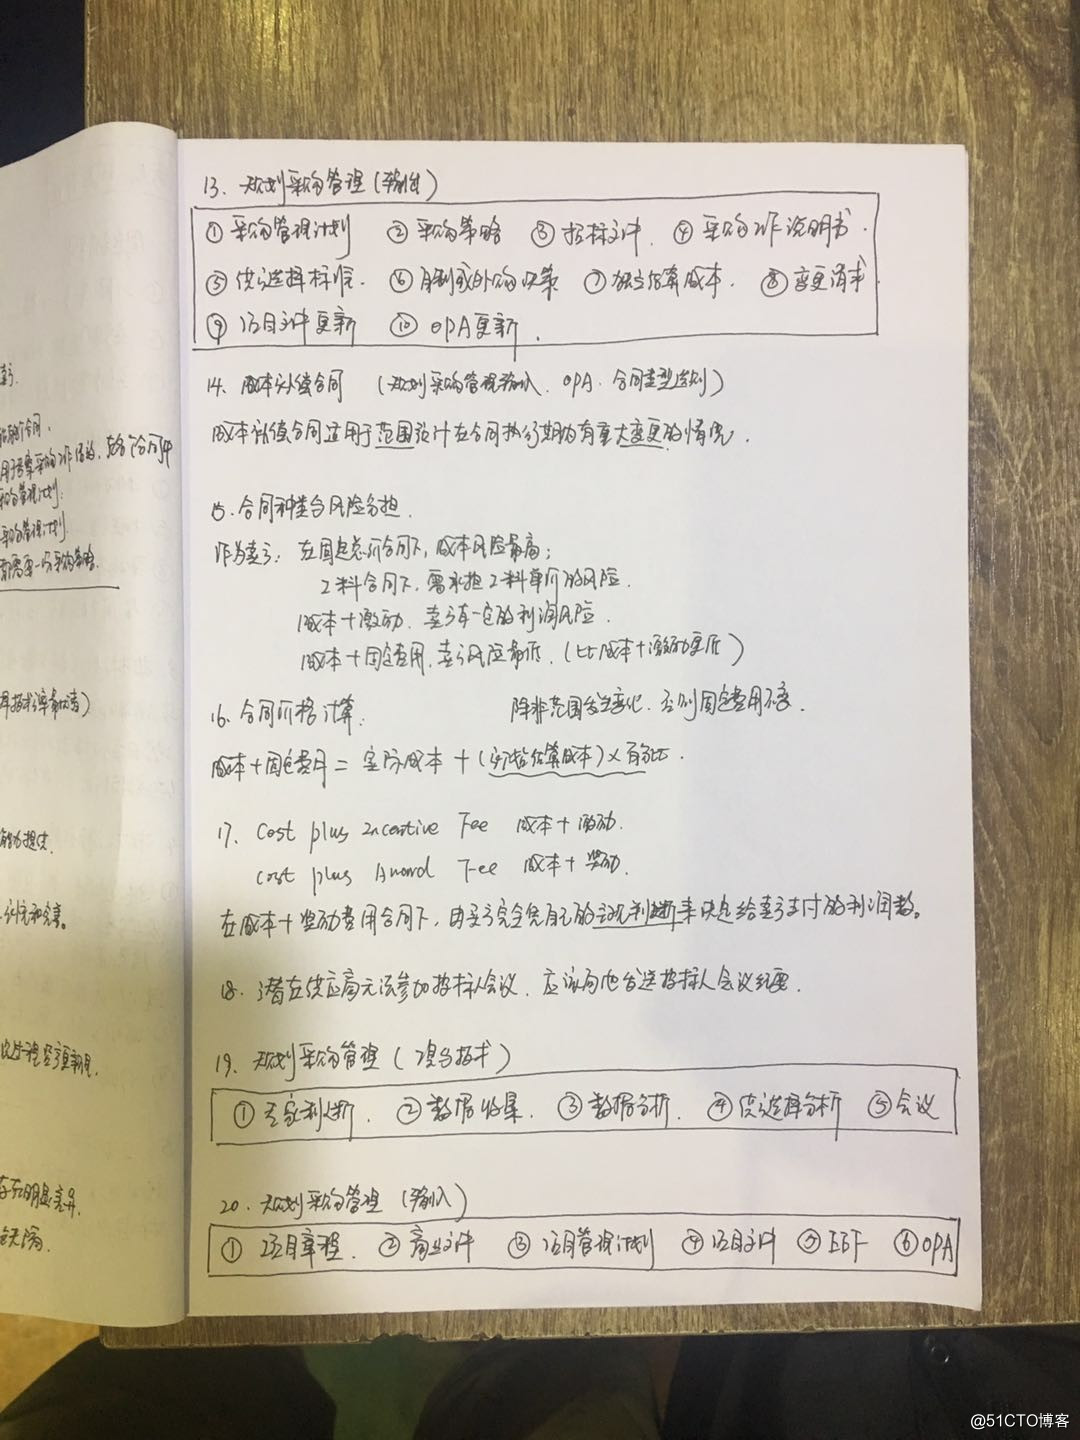 13. 规划采购管理(输出)
① 采购管理计划 ② 采购策略 ③ 招标文件. ④ 采购工作说明书.
⑤ 供方选择标准. ⑥ 自制或外购决策 ⑦ 独立估算成本. ⑧ 变更请求
⑨ 项目文件更新 ⑩ OPA更新.
14. 成本补偿合同 (规划采购管理输入. OPA. 合同类型选择)
成本补偿合同适用于范围预计在合同执行期内有重大变更的情况.
15. 合同种类与风险分担.
作为卖方: 在固定总价合同下, 成本风险最高;
工料合同下, 需承担工料单价的风险.
成本+激励. 卖方有一定的利润风险.
成本+固定费用, 卖方风险最低. (比成本+激励更低)
16. 合同价格计算. 除非范围发生变化. 否则固定费用不变.
成本+固定费用 = 实际成本 + (初始估算成本)×百分比.
17. Cost plus Incentive Fee 成本+激励.
cost plus Award Fee 成本+奖励.
在成本+奖励费用合同下, 由买方完全凭自己的主观判断来决定给卖方支付的利润数。
18. 潜在供应商无法参加投标人会议. 应该向他发送投标人会议纪要.
19. 规划采购管理 (工具与技术)
① 专家判断. ② 数据收集. ③ 数据分析. ④ 供方选择分析 ⑤ 会议
20. 规划采购管理 (输入)
① 项目章程. ② 商业文件 ③ 项目管理计划 ④ 项目文件 ⑤ EEF ⑥ OPA
采购管理计划.
采购管理计划.
@51CTO博客